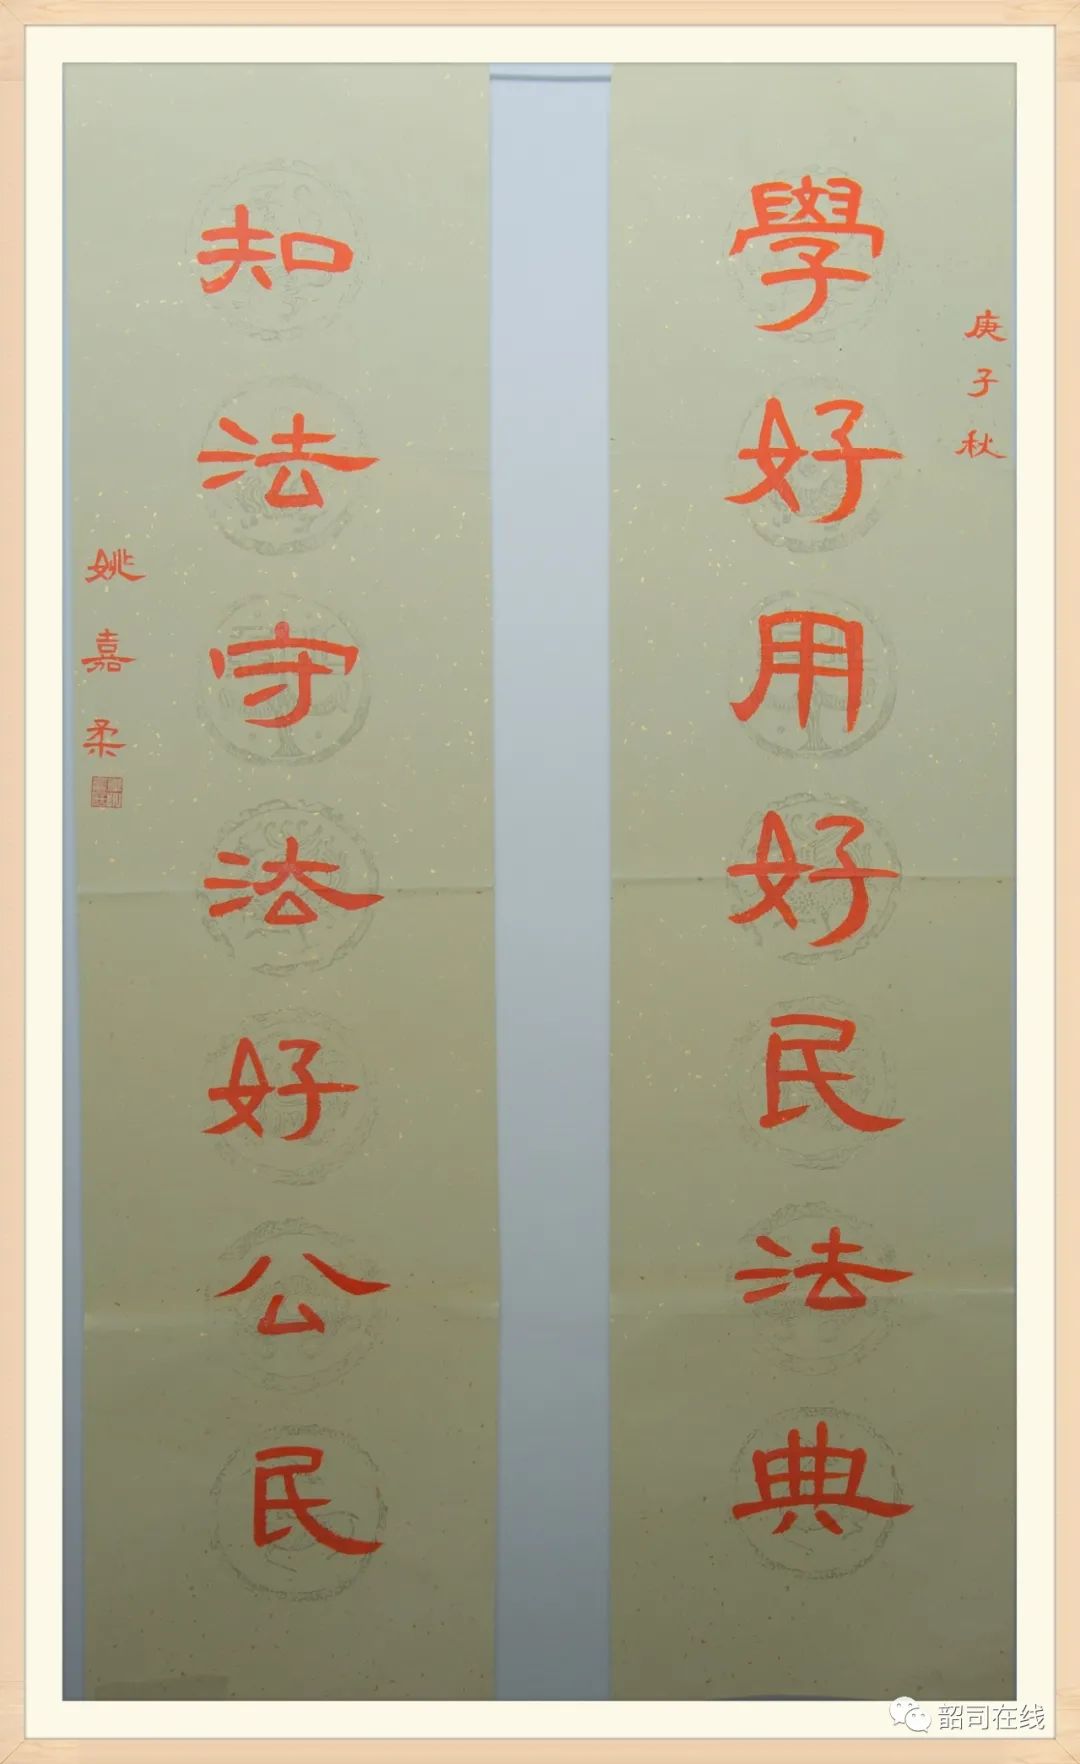 庚子秋
學好用好民法典
知法守法好公民
姚嘉柔
韶司在线